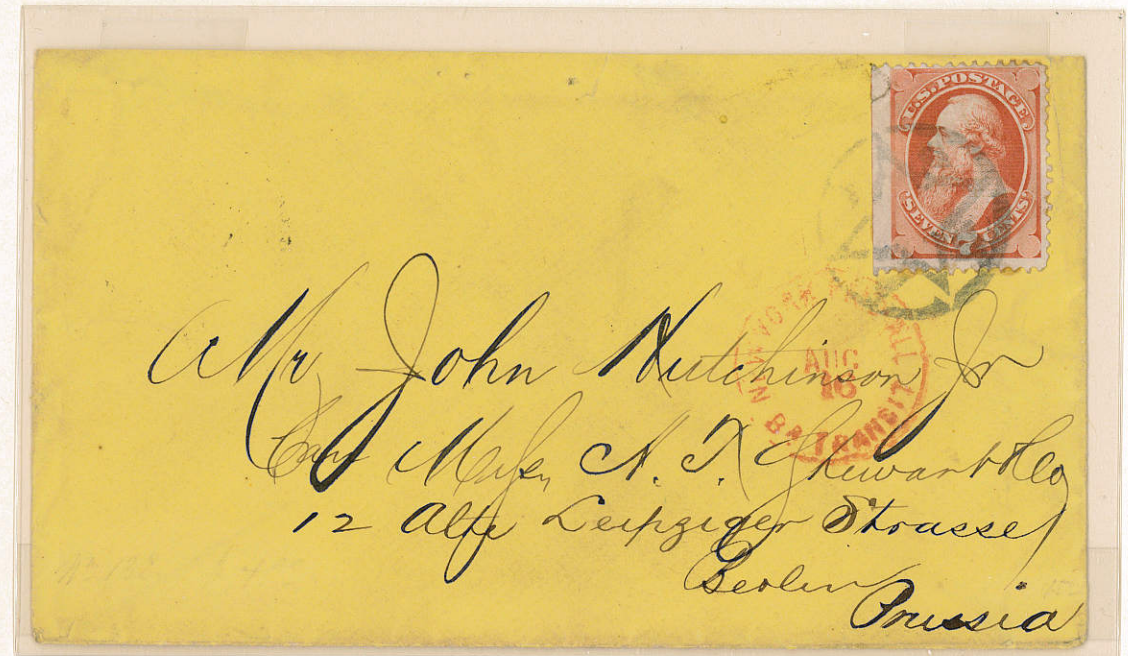 U.S. POSTAGE
SEVEN 7 CENTS
NEW YORK PAID ALL
AUG
16
BR. TRANSIT
Mr John Hutchinson Jr
Care Messrs A. T. Stewart & Co
12 Alte Leipziger Strasse
Berlin
Prussia
No 138